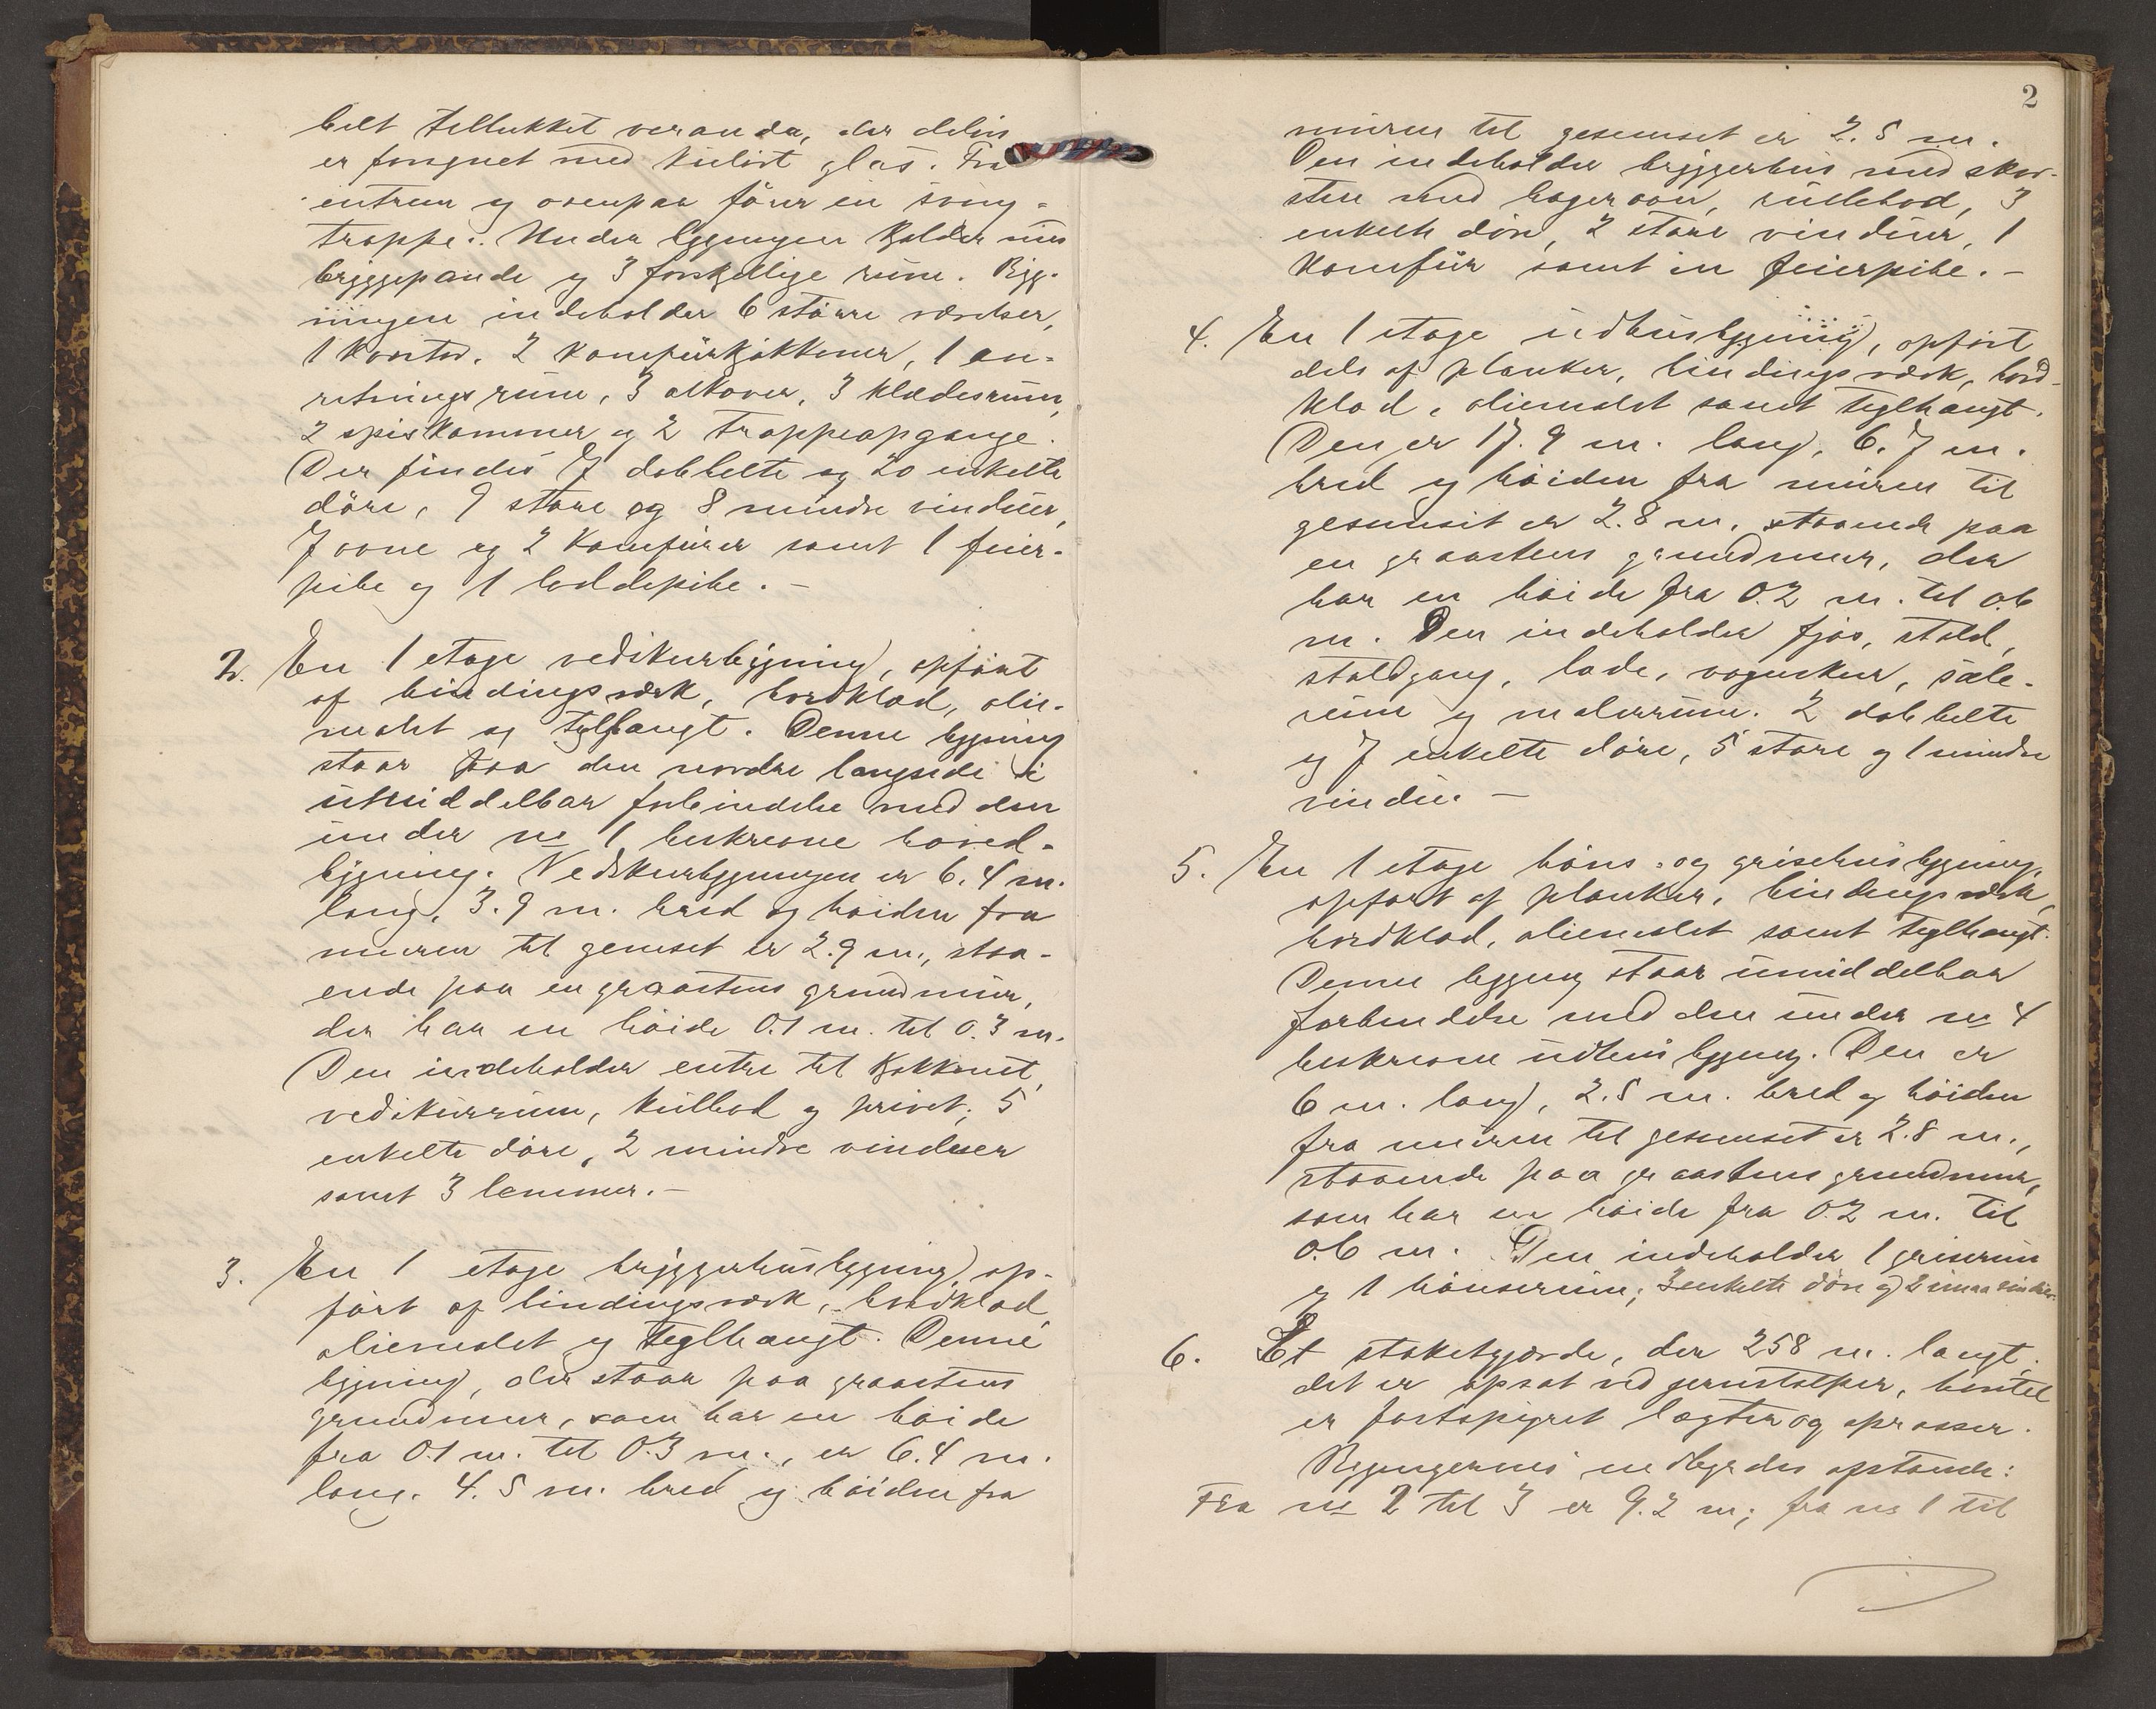 helt tillukket veranda, der delvis
er forsynet med kulørt glas. Fra
entreen og ovenpaa fører en sving-
trappe. Under bygningen kjælder med
bryggepande og 3 forskjellige rum. Byg-
ningen indeholder 6 større værelser,
1 kontor, 2 komfürkjøkkener, 1 an-
retningsrüm, 3 alkover, 3 klædesrüm,
2 spiskammer og 2 trappeopgange.
Der findes 7 dobbelte og 20 enkelte
døre, 9 store og 8 mindre vindüer,
7 ovne og 2 komfürer samt 1 feier-
pibe og 1 loddepibe. –
2. En 1 etage vedskurbygning, opført
af bindingsverk, bordklæd, olie-
malet og teglhængt. Denne bygning
staar paa den nordre langside i
umiddelbar forbindelse med den
ünder no 1 beskrevne hoved-
bygning. Vedskurbygningen er 6.4 m.
lang, 3.9 m. bred og høiden fra
muren til gemset er 2.9 m., staa-
ende paa en graastens grundmür,
der har en høide 0.1 m. til 0.3 m.
Den indeholder entre til kjøkkenet,
vedskürrüm, külbod og privet, 5
enkelte døre, 2 mindre vinduer
samt 3 lemmer. –
3. En 1 etage bryggerhüsbygning op-
ført af bindingsverk, bordklæd,
oliemalet og teglhængt. Denne
bygning, der staar paa graastens
grundmur, som har en høide
fra 0.1 m. til 0.3 m., er 6.4 m.
lang, 4.5 m. bred og høiden fra
2
müren til gesemset er 2.5 m.
Den indeholder bryggerhüs med skor-
sten med bagerovn, rüllebod, 3
enkelte døre, 2 store vindüer, 1
komfür samt en feierpibe. –
4. En 1 etage üdhüsbygning, opført
dels af planker, bindingsværk, bord-
klæd, oliemalet samt teglhængt.
Den er 17.9 m. lang, 6.7 m.
bred og høiden fra müren til
gesemset er 2.8 m. staaende paa
en graastens grundmur, der
har en høide fra 0.2 m. til 0.6
m. Den indeholder fjøs, stald,
staldgang, lade, vognskur, sæle-
rüm og malerrüm. 2 dobbelte
og 7 enkelte døre, 5 store og 1 mindre
vindü. –
5. En 1 etage høns- og grisehüsbygning,
opført af planker, bindingsværk,
bordklæd, oliemalet samt teglhængt.
Denne bygning staar ümiddelbar
forbindelse med den ünder no 4
beskrevne üdhüsbygning. Den er
6 m. lang, 2.5 m. bred og høiden
fra müren til gesemset er 2.8 m.,
staaende paa graastens grundmur,
som har en høide fra 0.2 m. til
0.6 m. Den indeholder 1 griserüm
og 1 hønserüm; 3 enkelte døre og 2 smaa vindüer.
6. Et staketgjærde, der 258 m. langt;
det er opsat ved jernstolper, hvortil
er fastspigret lægter og sprosser.
Bygningernes indbyrdes afstande:
Fra no 2 til 3 er 9.2 m; fra no 1 til